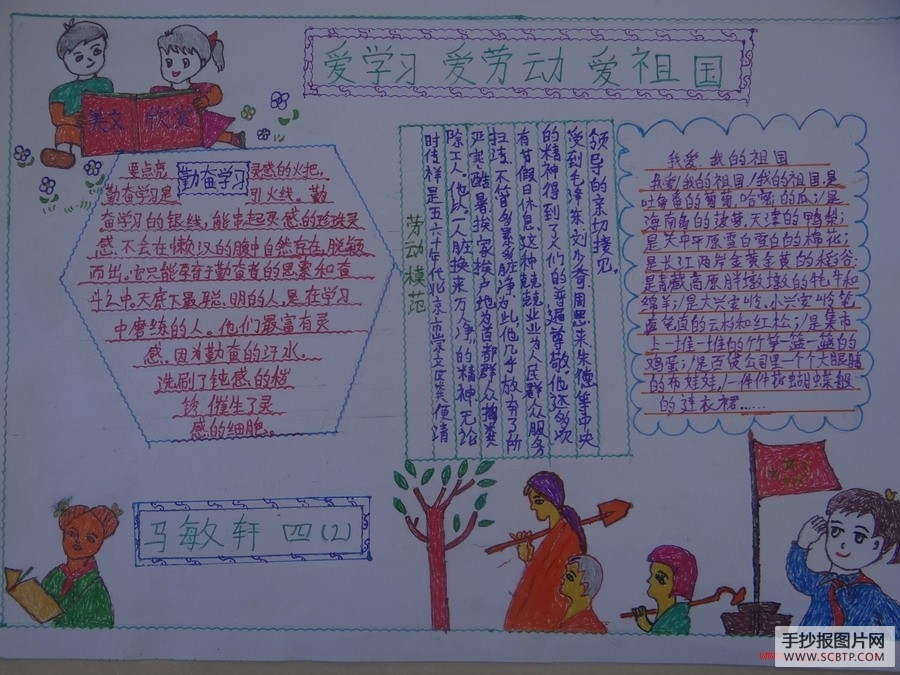 爱学习 爱劳动 爱祖国
美文 欣赏
勤奋学习
要点亮 灵感的火把,
勤奋学习是 引火线。勤
奋学习的银线,能串起灵感的珍珠灵
感.不会在懒汉的腹中自然存在,脱颖
而出。它只能孕育于勤奋者的思索和奋
斗之中。天底下最聪、明的人,是在学习
中磨练的人。他们最富有灵
感.因为勤奋的汗水.
洗刷了钝感的
锈.催生了灵
感的细胞。
劳动模范
时传祥是五六十年代北京
除工人。他以"一人脏换来万人净"的精神无论
严寒酷暑挨家挨户地为首都群众掏粪
扫污,不管多累多脏
有甘假日休息.这种兢兢业业为人民群众服务
的精神得到了人们的普遍尊敬.他还多次
受到毛泽东、刘少奇周恩来朱德等中央
领导的亲切接见。
我爱 我的祖国
我爱!我的祖国!我的祖国.是
吐鲁番的葡萄,哈密的瓜;/是
海南岛的菠萝,天津的鸭梨;
是关中平原雪白雪白的棉花;
是长江两岸金黄金黄的稻谷;
是青藏高原胖墩墩的牦牛和
绵羊;/是大兴安岭、小兴安岭
笔直的云杉和红松;/是集市
上一堆一堆的竹笋一篮一篮的
鸡蛋;/是百货公司里一个个大眼睛
的布娃娃,/一件件花蝴蝶般
的连衣裙……
马敏轩 四(2)
手抄报图片网
WWW.SCBTP.COM